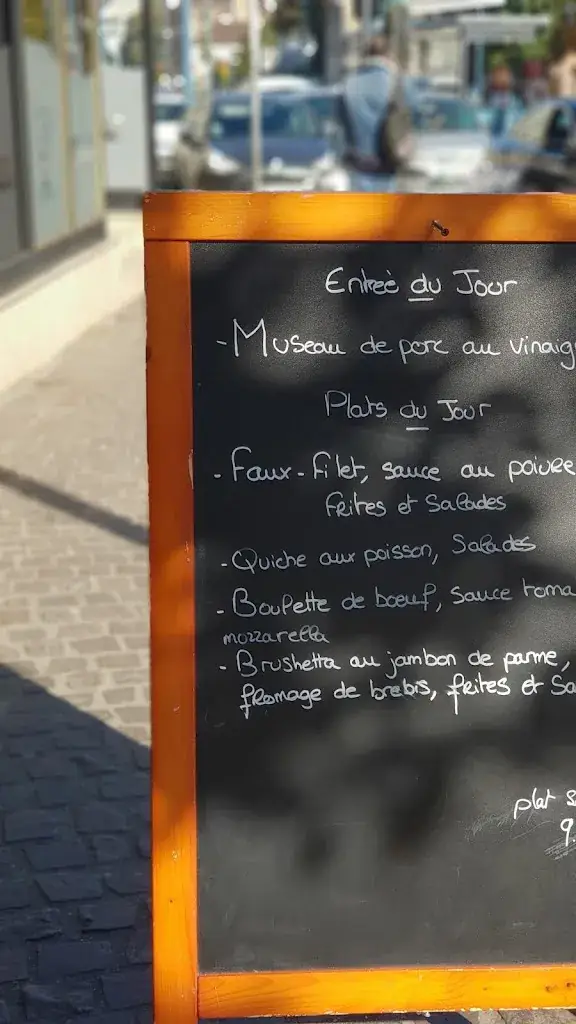 Entrée du Jour
- Museau de porc au vinaig
Plats du Jour
- Faux-Filet, sauce au poivre
frites et Salades
- Quiche aux poisson, Salades
- Boulette de boeuf, Sauce toma
mozzarella
- Brushetta au jambon de parme,
fromage de brebis, frites et Sa
plat s
9.